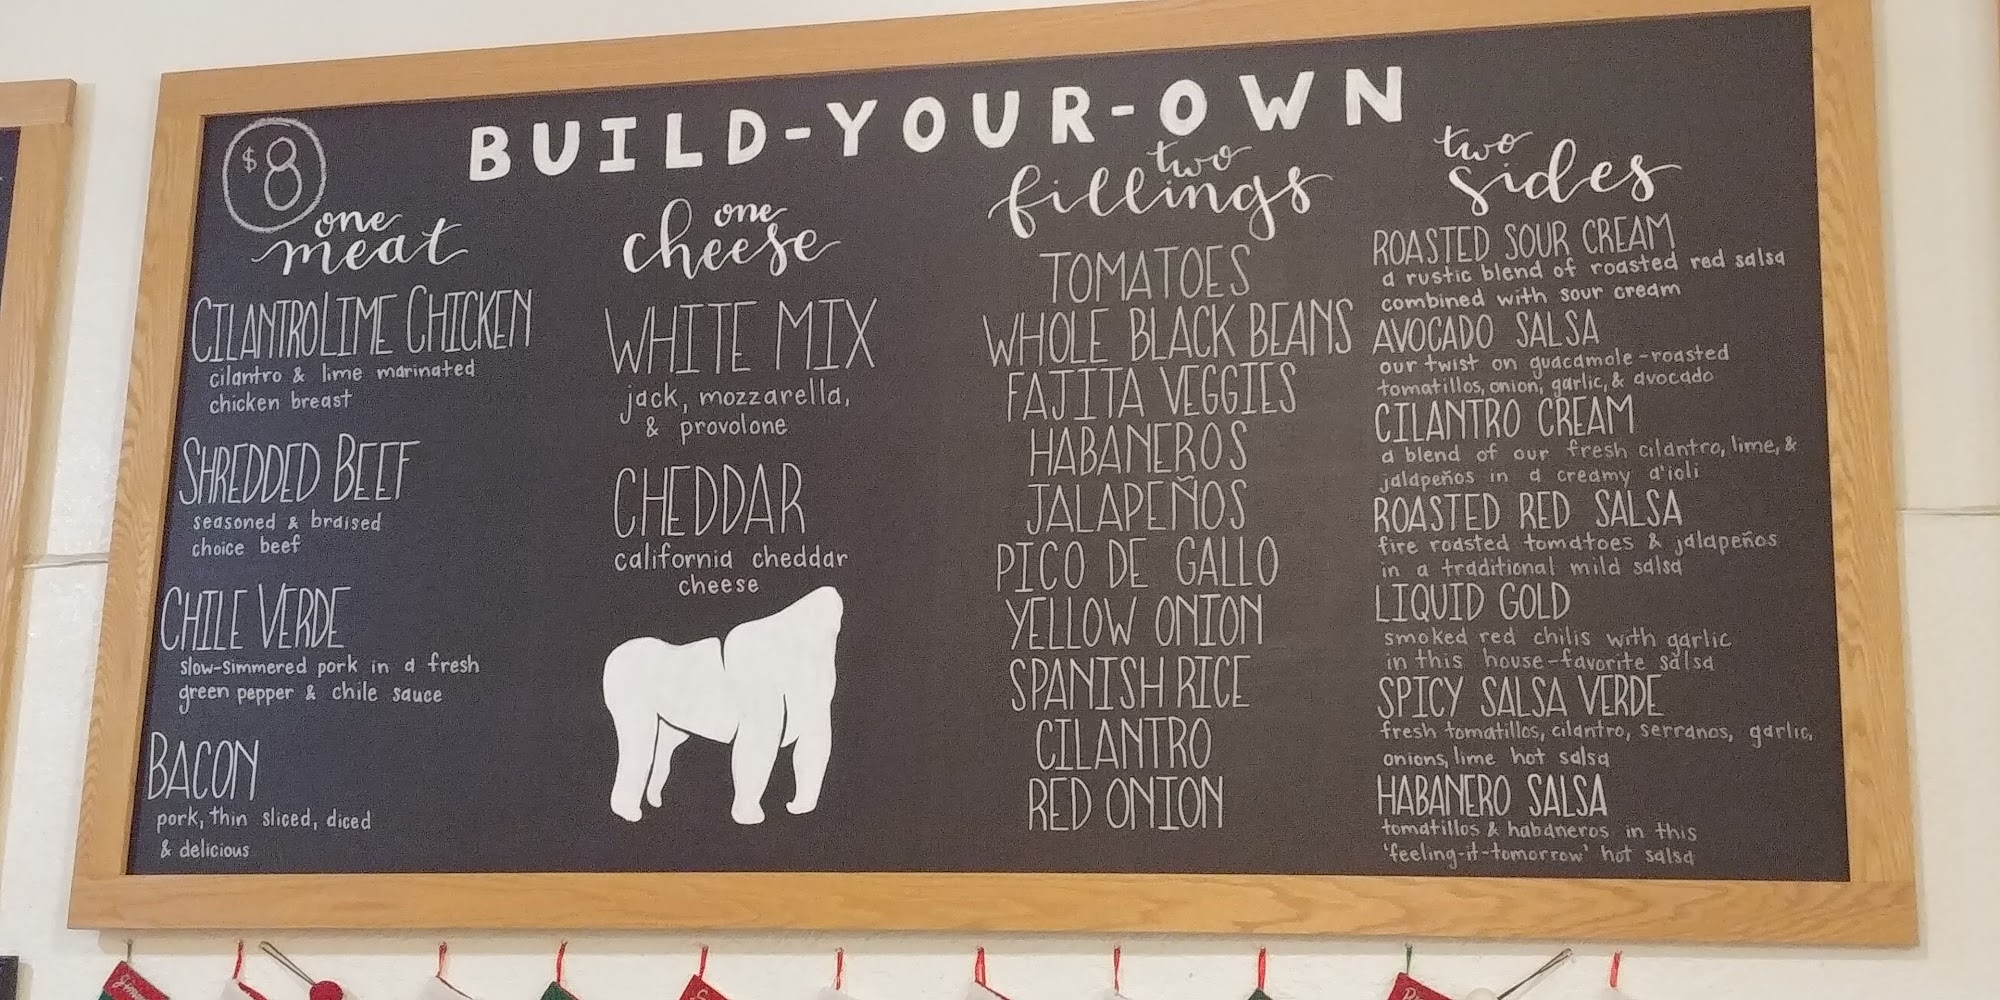 $8
BUILD-YOUR-OWN
one
meat
CILANTRO LIME CHICKEN
cilantro & lime marinated
chicken breast
SHREDDED BEEF
seasoned & braised
choice beef
CHILE VERDE
slow-simmered pork in a fresh
green pepper & chile sauce
BACON
pork, thin sliced, diced
& delicious
one
cheese
WHITE MIX
jack, mozzarella,
& provolone
CHEDDAR
california cheddar
cheese
two
fillings
TOMATOES
WHOLE BLACK BEANS
FAJITA VEGGIES
HABANEROS
JALAPEÑOS
PICO DE GALLO
YELLOW ONION
SPANISH RICE
CILANTRO
RED ONION
two
sides
ROASTED SOUR CREAM
a rustic blend of roasted red salsa
combined with sour cream
AVOCADO SALSA
our twist on guacamole-roasted
tomatillos, onion, garlic, & avocado
CILANTRO CREAM
a blend of our fresh cilantro, lime, &
jalapeños in a creamy a'ioli
ROASTED RED SALSA
fire roasted tomatoes & jalapeños
in a traditional mild salsa
LIQUID GOLD
smoked red chilis with garlic
in this house-favorite salsa
SPICY SALSA VERDE
fresh tomatillos, cilantro, serranos, garlic,
onions, lime hot salsa
HABANERO SALSA
tomatillos & habaneros in this
'feeling-it-tomorrow' hot salsa